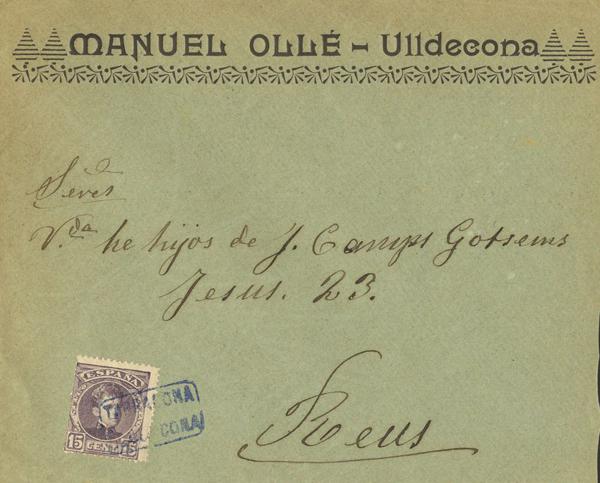 MANUEL OLLÉ - Ulldecona
Sres
V.da he hijos de J. Camps Gotsems
Jesus. 23.
Reus
ESPAÑA
15 CENTS 15
CONA